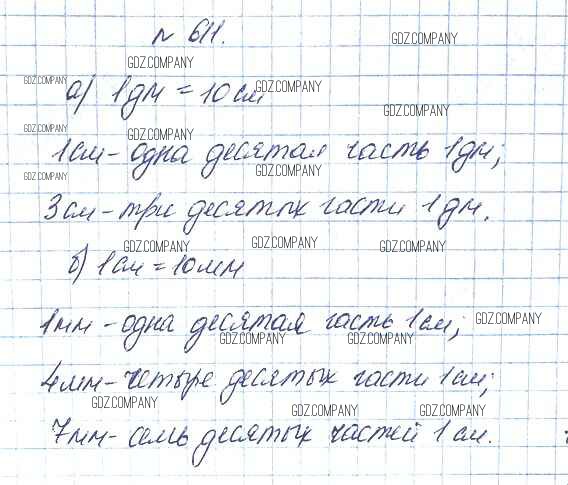 № 611.
GDZ.COMPANY
GDZ.COMPANY
GDZ.COMPANY
а) 1дм = 10см
GDZ.COMPANY
GDZ.COMPANY
GDZ.COMPANY
GDZ.COMPANY
1см - одна десятая часть 1дм;
GDZ.COMPANY
GDZ.COMPANY
3см - три десятых части 1дм.
GDZ.COMPANY
GDZ.COMPANY
GDZ.COMPANY
б) 1см = 10мм
1мм - одна десятая часть 1см;
GDZ.COMPANY
GDZ.COMPANY
GDZ.COMPANY
4мм - четыре десятых части 1см;
GDZ.COMPANY
GDZ.COMPANY
GDZ.COMPANY
7мм - семь десятых частей 1см.